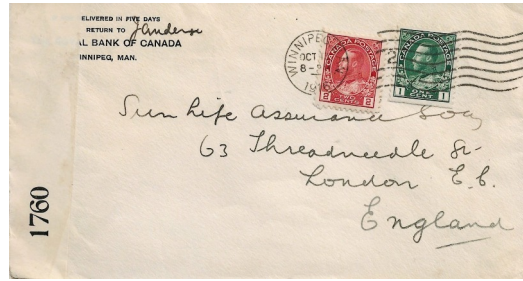 ELIVERED IN FIVE DAYS
RETURN TO J Anderson
AL BANK OF CANADA
INNIPEG, MAN.
WINNIPEG
OCT
8 -
19
CANADA POSTAGE
2 TWO CENTS 2
CANADA POSTAGE
1 ONE CENT 1
Sun Life Assurance Socy
63 Threadneedle St-
London E.C.
England
1760